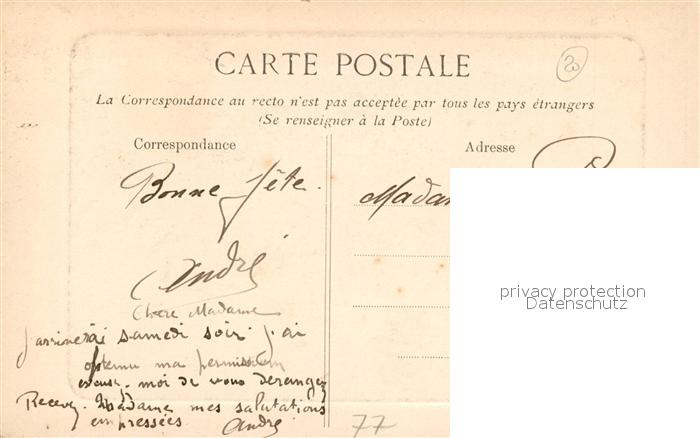 CARTE POSTALE
La Correspondance au recto n'est pas acceptée par tous les pays étrangers
(Se renseigner à la Poste)
Correspondance
Adresse
Bonne fête.
André
Madam
privacy protection
Datenschutz
Chère Madame
J'arriverai samedi soir j'ai
obtenu ma permission
excusez-moi de vous déranger
Recevez Madame mes salutations
empressées
André
77